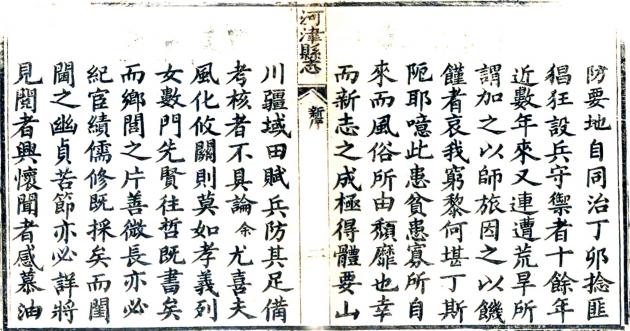 防要地自同治丁卯捻匪
猖狂設兵守禦者十餘年
近數年來又連遭荒旱所
謂加之以師旅因之以饑
饉者哀我窮黎何堪丁斯
阨耶噫此患貧患寡所自
來而風俗所由頹靡也幸
而新志之成極得體要山
河津縣志
新序
二
川疆域田賦兵防其足備
考核者不具論余尤喜夫
風化攸關則莫如孝義列
女數門先賢往哲既書矣
而鄉閭之片善微長亦必
紀官績儒修既採矣而閨
閫之幽貞苦節亦必詳將
見閱者興懷聞者感慕油